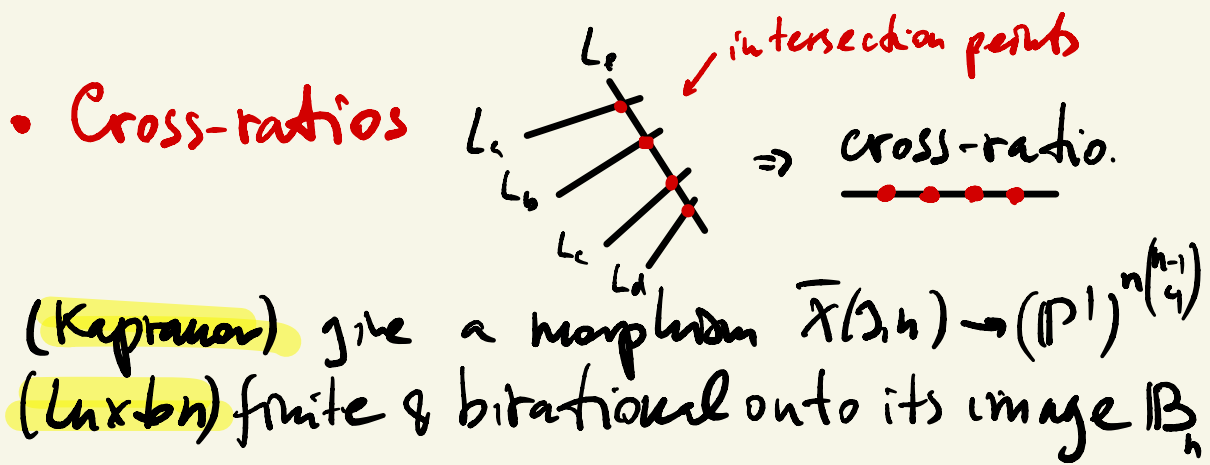 intersection points
L_e
• Cross-ratios
L_a
L_b
L_c
L_d
⇒ cross-ratio.
(Kapranov) give a morphism X̄(3,n) → (ℙ¹)^{n\binom{n-1}{4}}
(Luxton) finite & birational onto its image 𝔹_n